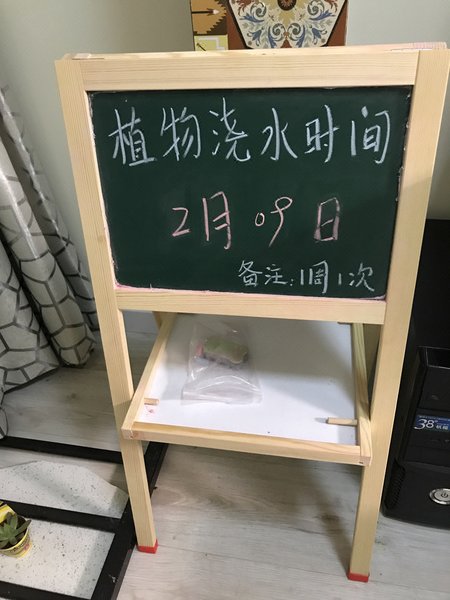 植物浇水时间
2月09日
备注:1周1次
38°